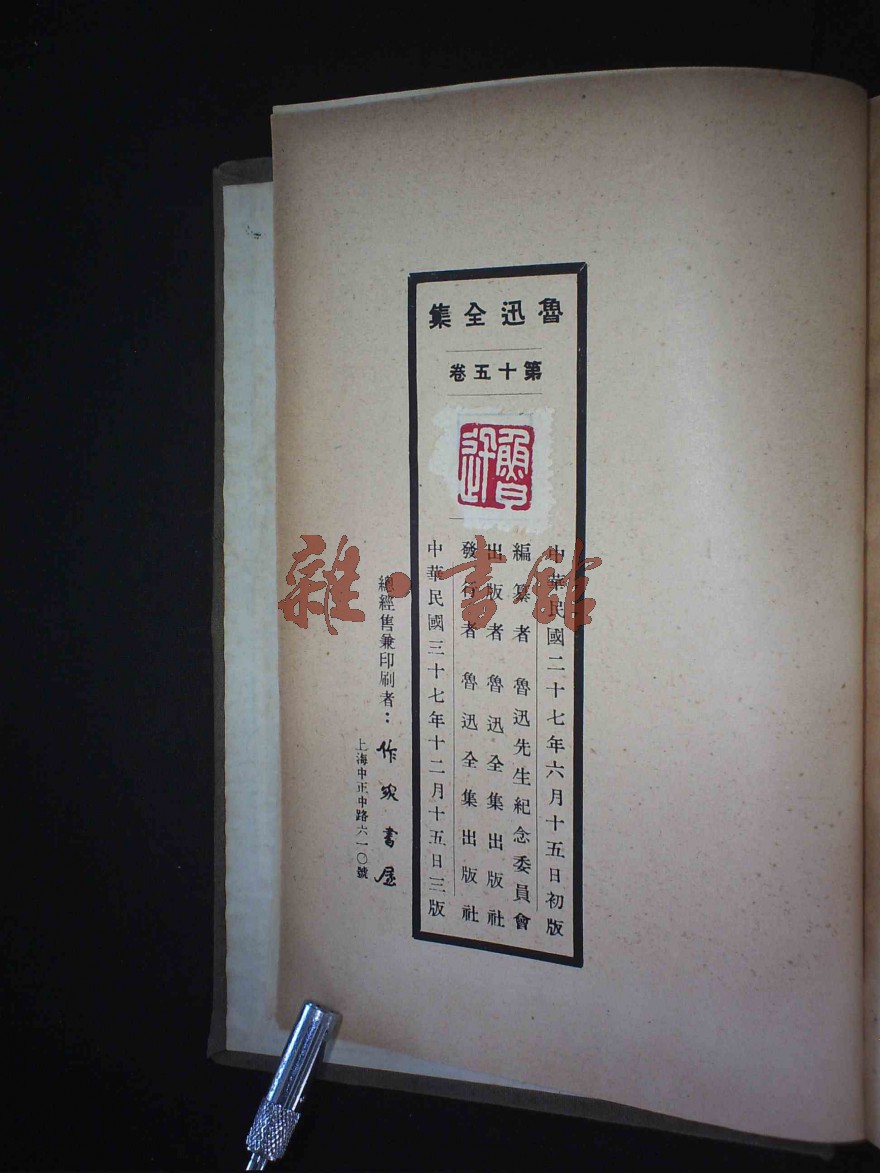 魯迅全集
第十五卷
魯迅
中華民國二十七年六月十五日初版
編纂者 魯迅先生紀念委員會
出版者 魯迅全集出版社
發行者 魯迅全集出版社
中華民國三十七年十二月十五日三版
總經售兼印刷者：作家書屋
上海中正中路六一〇號
雜·書館